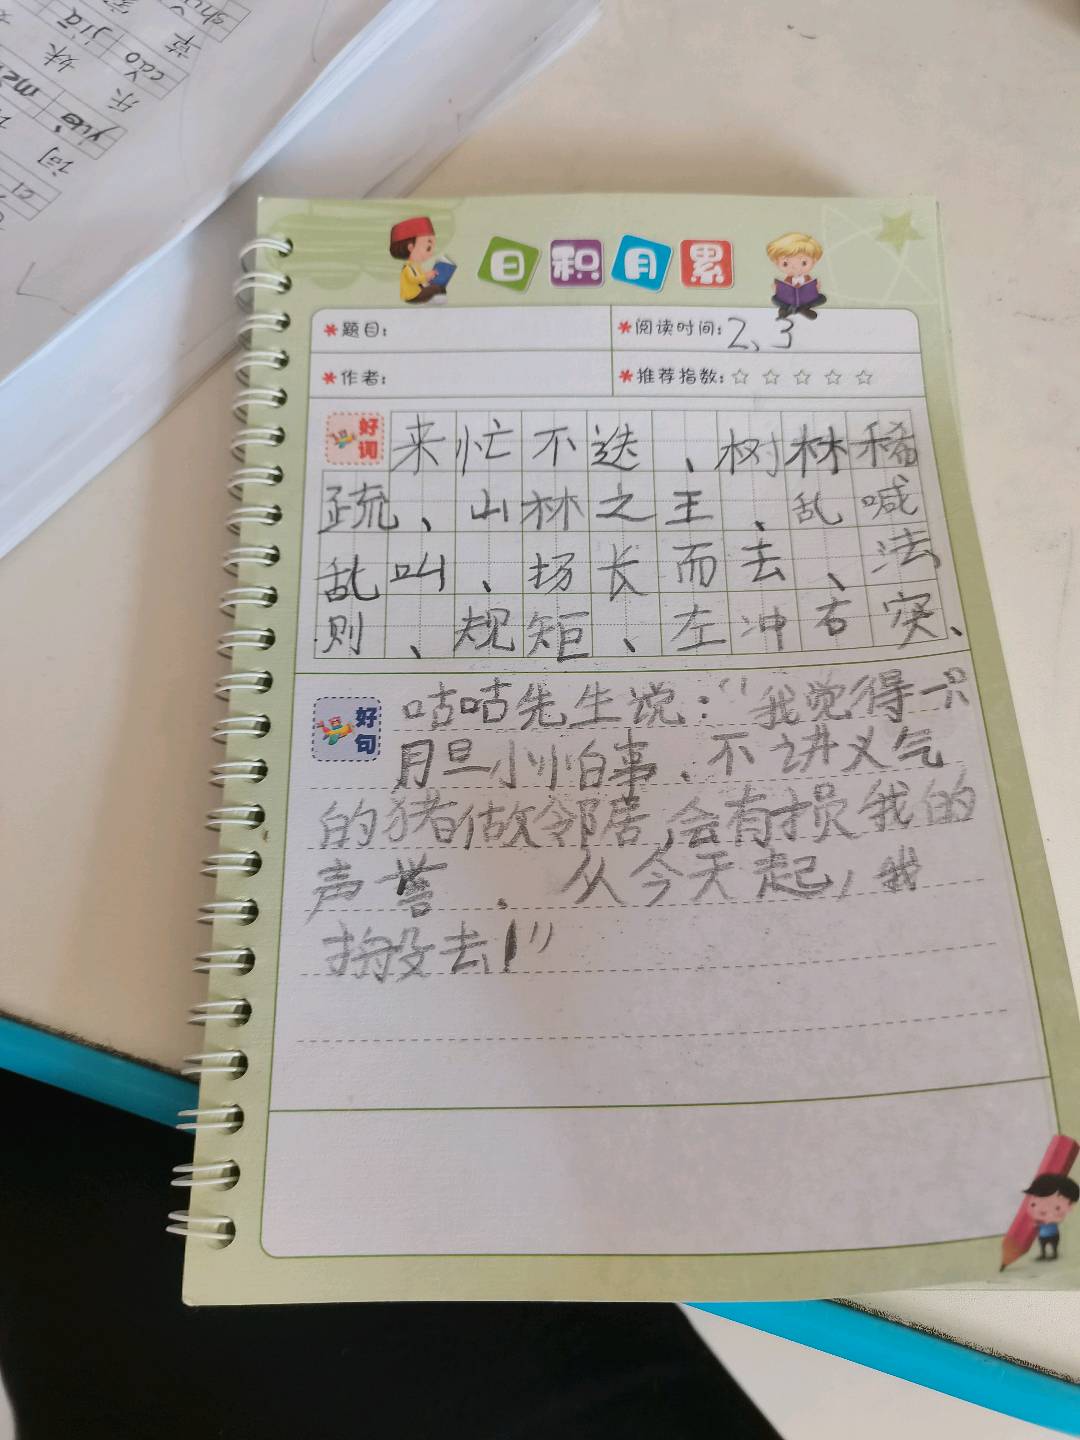 日积月累
题目: 阅读时间: 2、3
作者: 推荐指数: ☆ ☆ ☆ ☆ ☆
好词 来忙不迭、树林稀
疏、山林之王、乱喊
乱叫、扬长而去、法
则、规矩、左冲右突、
好句 咕咕先生说:“我觉得一只
胆小怕事、不讲义气
的猪做邻居,会有损我的
声誉. 从今天起,我
搬去!”
草
cǎo jiā
妹
乐
yuè
词